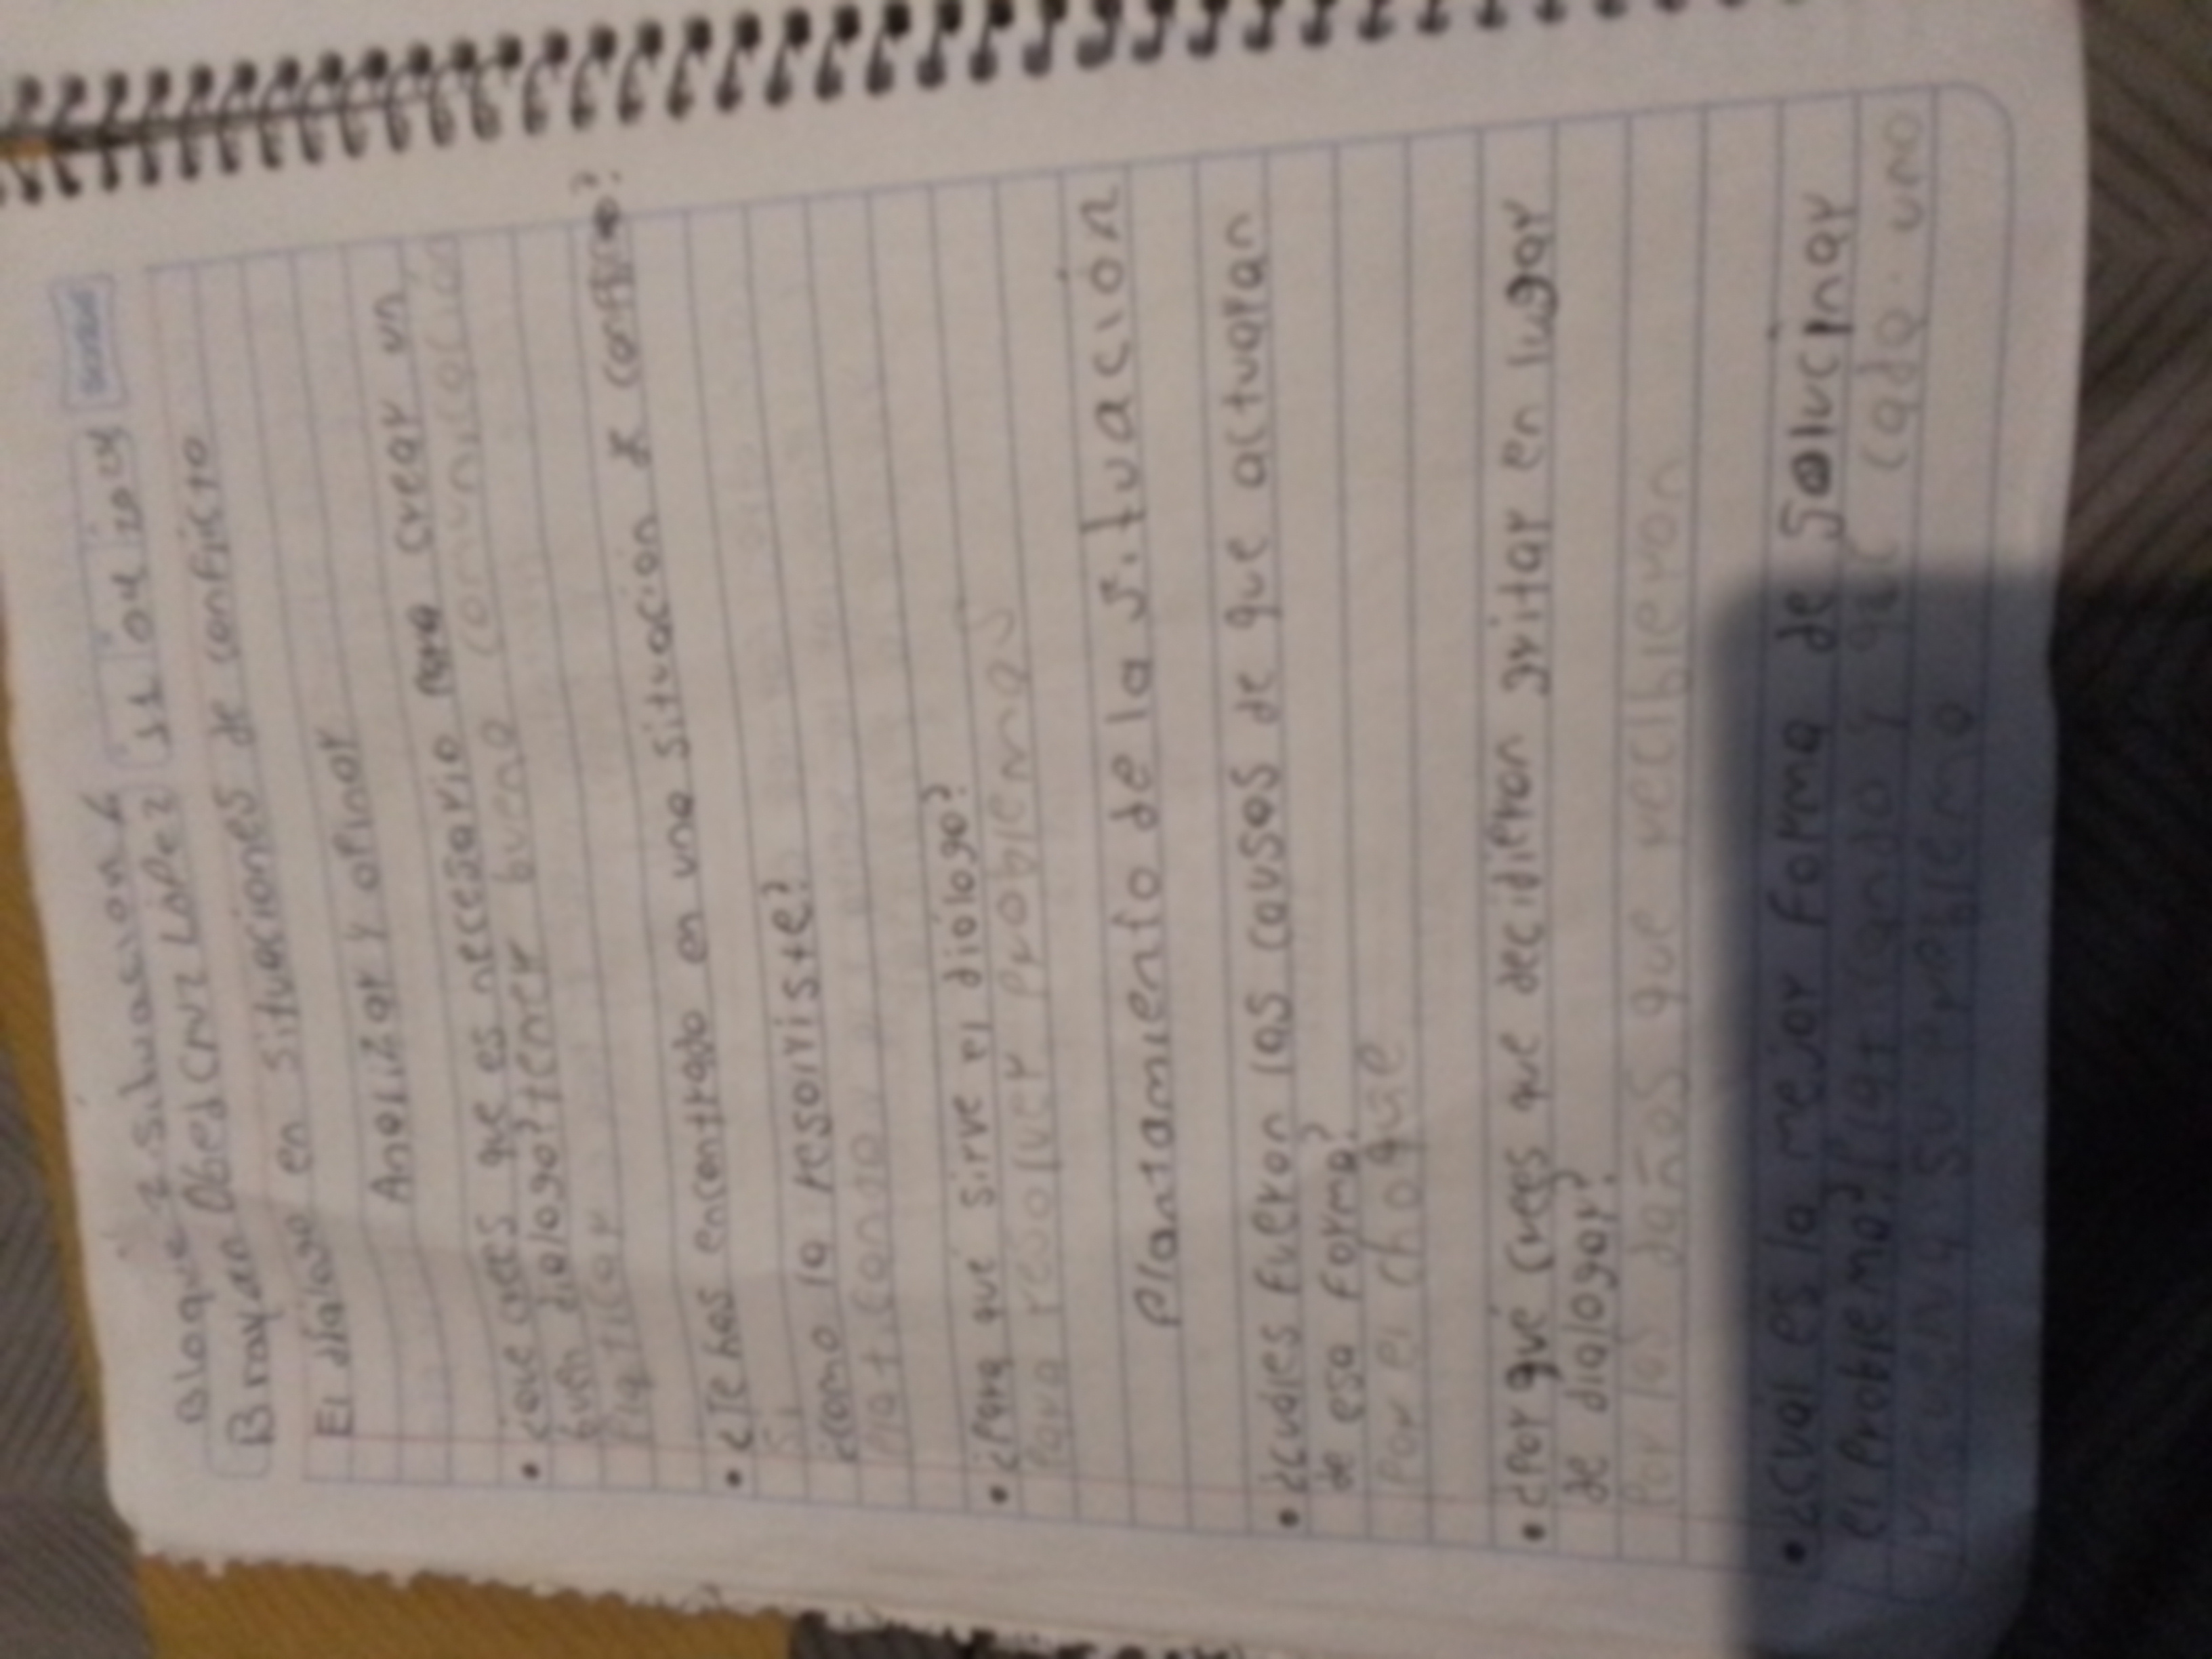 Bloque 2 Situacion 6
Brayan Obed Cruz Lopez
El dialogo en situaciones de conflicto
Analizar y opinar
• ¿Que crees que es necesario para crear un
buen dialogo? tener buena comunicacion
Platicar
• ¿Te has encontrado en una situacion de conflicto?
Si
¿como la resolviste?
Platicando
• ¿Para que sirve el diólogo?
Para resolver problemas
Plantamiento de la situación
• ¿cuales fueron las causas de que actuaran
de esa forma?
Por el choque
• ¿Por qué crees que decidieron gritar en lugar
de dialogar?
Por los daños que recibieron
• ¿Cual es la mejor forma de Solucinar
el problema? Platicando y que cada uno
resuelva su problema